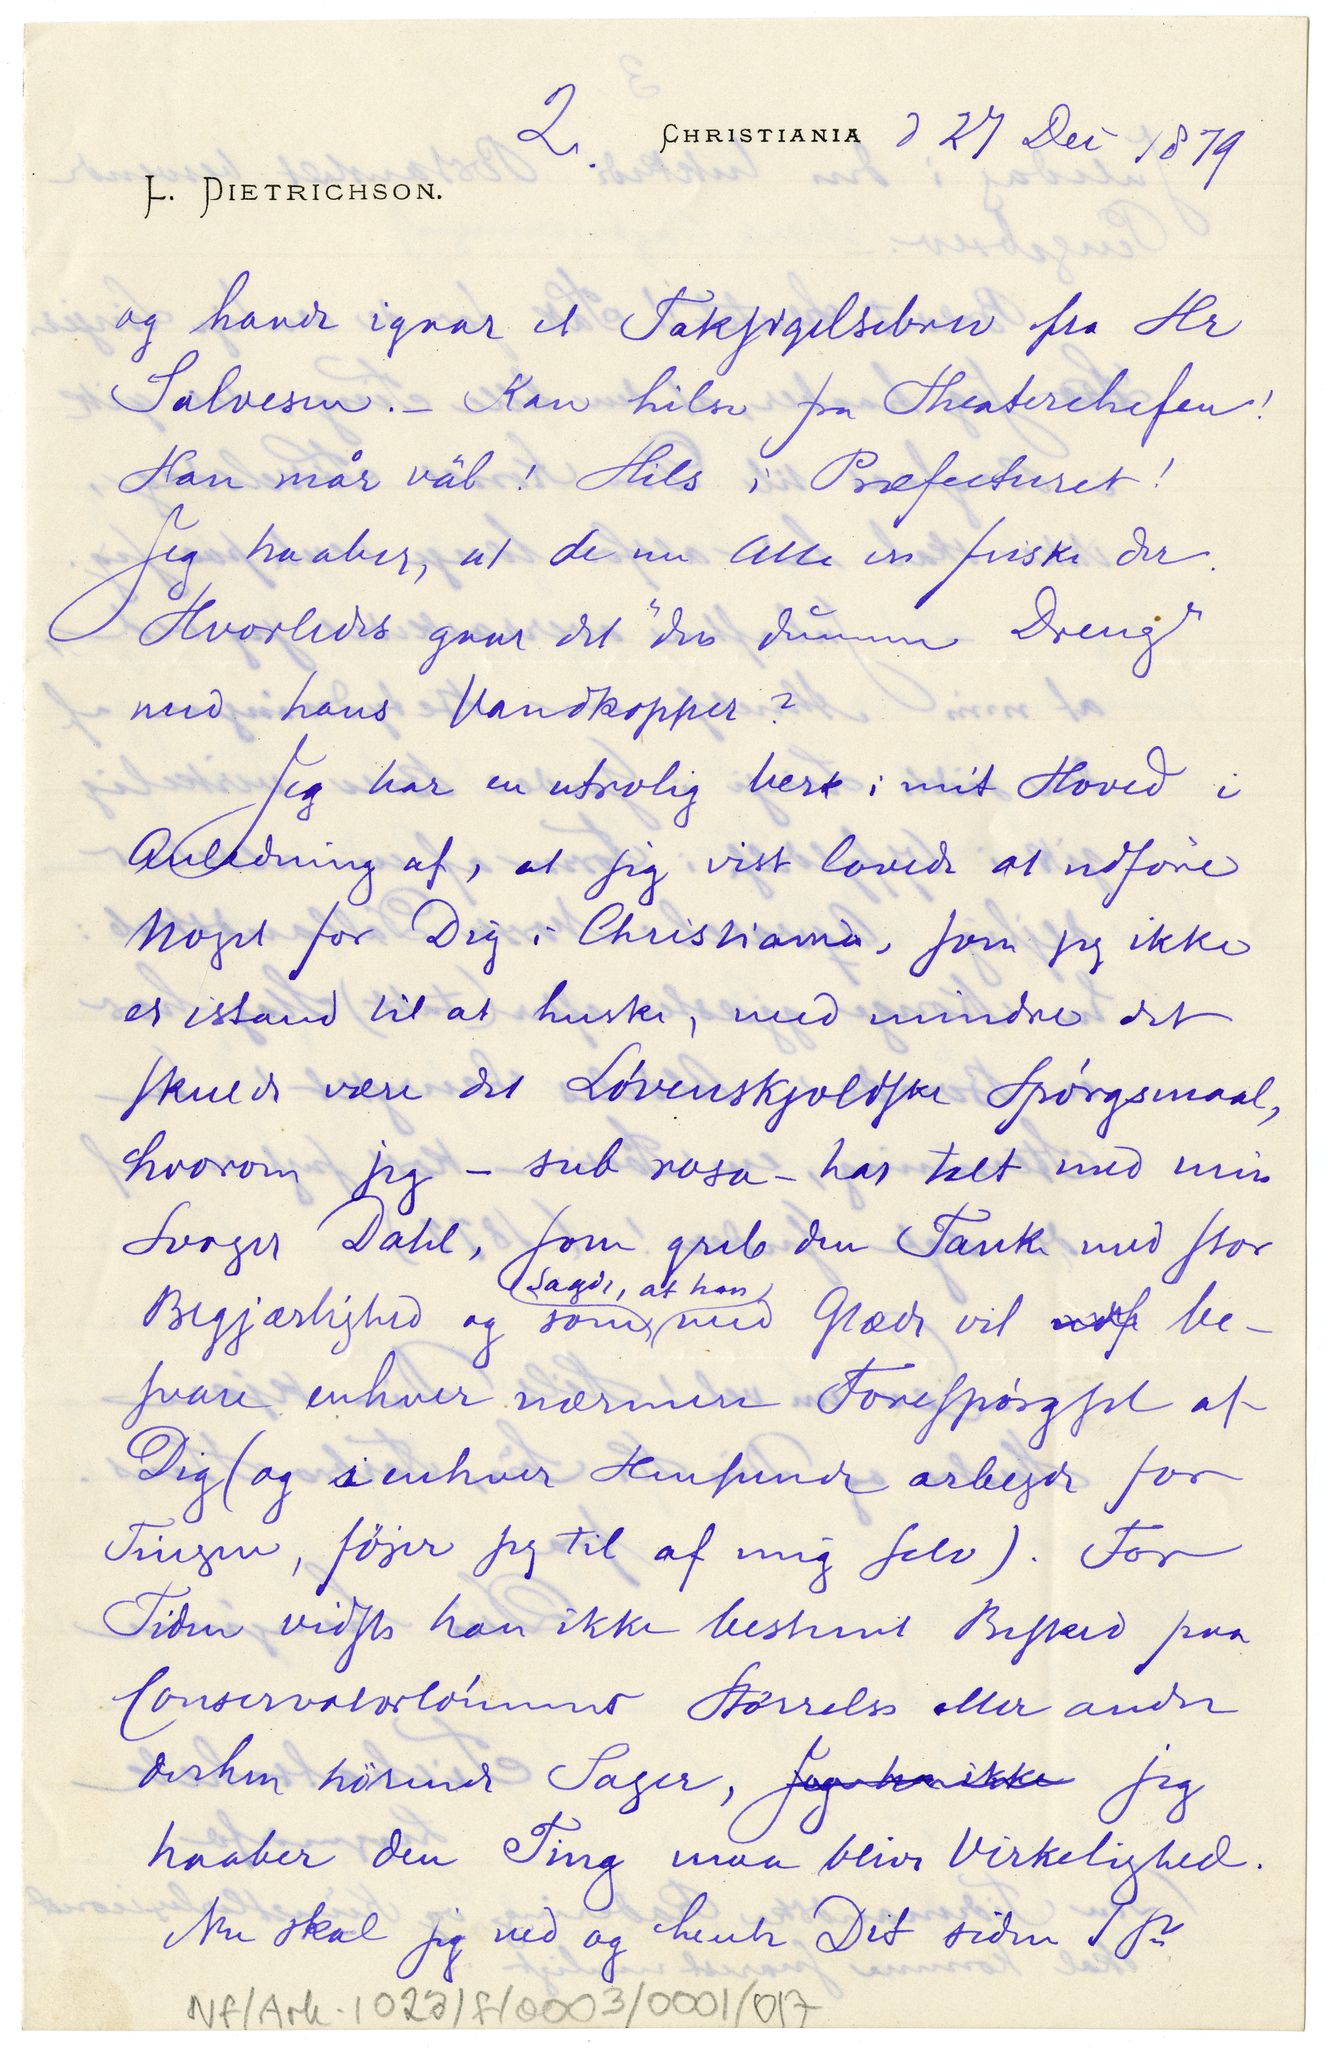 2. CHRISTIANIA d 27 Dec 1879
L. DIETRICHSON.
og havde igaar et Taksigelsesbrev fra Hr
Salvesen. – Kan hilse fra Theaterchefen!
Han mår väl! Hils i Præfecturet!
Jeg haaber, at de nu Alle ere friske der.
Hvorledes gaar det "den dumme Dreng"
med hans Vandkopper?
Jeg har en utrolig verk i mit Hoved i
Anledning af, at jeg vist lovede at udføre
Noget for Dig i Christiania, som jeg ikke
er istand til at huske, med mindre det
skulde være det Løvenskjoldske Spørgsmaal,
hvorom jeg – sub rosa – har talt med min
Svoger Dahl, som greb den Tanke med stor
Begjærlighed og som sagde, at han med Glæde vil be-
svare enhver nærmere Forespørgsel af
Dig (og i enhver Henseende arbejde for
Tingen, føjer jeg til af mig selv). For
Tiden vidste han ikke bestemt Besked paa
Conservatorlønnens Størrelse eller andre
derhen hørende Sager, Jeg har ikke jeg
haaber den Ting maa blive Virkelighed.
Nu skal jeg ned og hente Dit siden 1ste
NF/Ark-1023/F/0003/0001/017